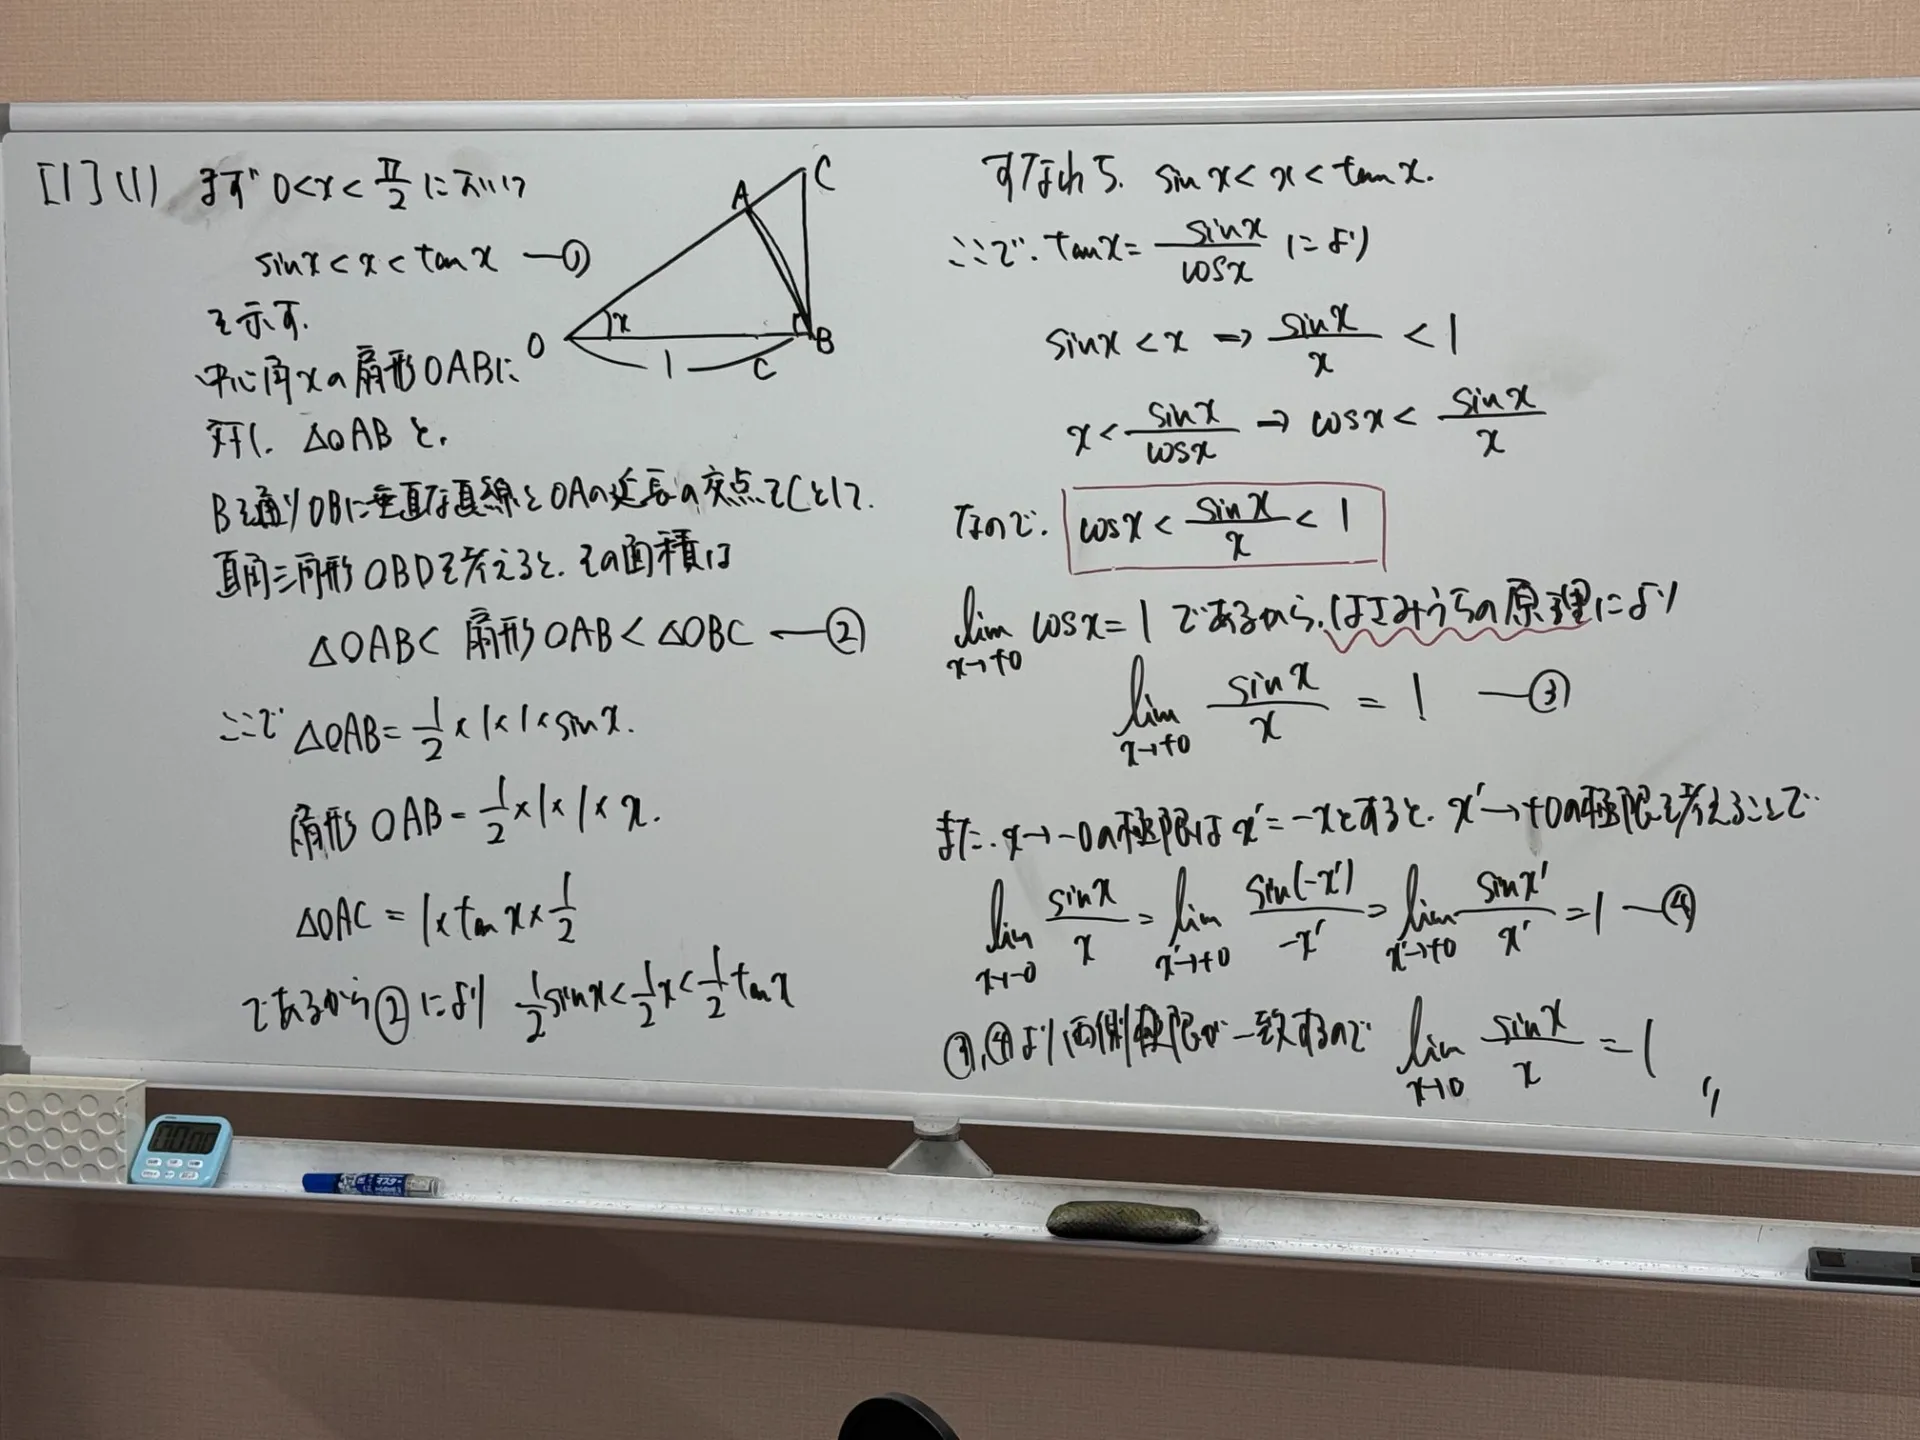 [1] (1) まず 0<x<π/2 において
sinx<x<tanx ―①
を示す.
中心角xの扇形OABに
対し、△OABと、
Bを通りOBに垂直な直線とOAの延長の交点をCとして、
直角三角形OBDを考えると、その面積は
△OAB< 扇形OAB<△OBC ―②
ここで △OAB=1/2×1×1×sinx.
扇形OAB=1/2×1×1×x.
△OAC=1×tanx×1/2
であるから②により 1/2sinx<1/2x<1/2tanx
A
C
O
x
B
1
C
すなわち、sinx<x<tanx.
ここで、tanx=sinx/cosx により
sinx<x⇒sinx/x<1
x<sinx/cosx⇒cosx<sinx/x
なので、cosx<sinx/x<1
lim x→+0 cosx=1 であるから、はさみうちの原理により
lim x→+0 sinx/x=1 ―③
また、x→-0の極限はx'=-xとすると、x'→+0の極限を考えることで
lim x→-0 sinx/x=lim x'→+0 sin(-x')/-x'=lim x'→+0 sinx'/x'=1 ―④
③,④より両側極限が一致するので lim x→0 sinx/x=1 〃